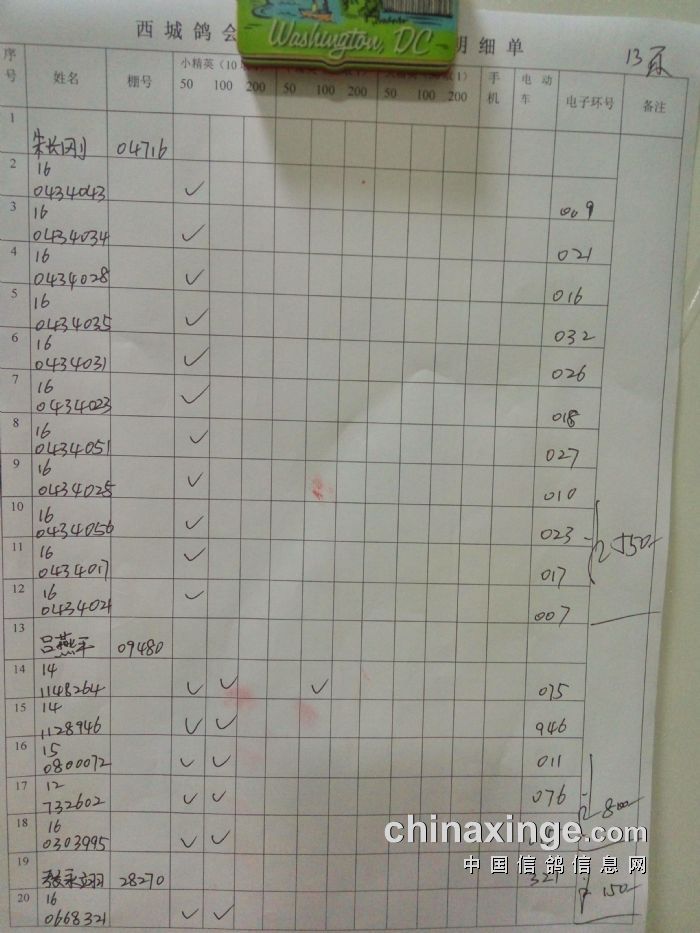 西城鸽会
Washington, DC
明细单
13页
序号 姓名 棚号 小精英(10 50 100 200 50 100 200 1) 50 100 200 手机 电动车 电子环号 备注
1 朱长刚 04716
2 16 0434043 ✓ 009
3 16 0434034 ✓ 021
4 16 0434028 ✓ 016
5 16 0434035 ✓ 032
6 16 0434031 ✓ 026
7 16 0434023 ✓ 018
8 16 0434051 ✓ 027
9 16 0434025 ✓ 010
10 16 0434056 ✓ 023
550
11 16 0434017 ✓ 017
12 16 0434021 ✓ 007
13 吕燕平 09480
14 14 1148264 ✓ ✓ ✓ 075
15 14 1128946 ✓ ✓ 946
16 15 0800072 ✓ ✓ 011
17 12 732602 ✓ ✓ 076
18 16 0303995 ✓ ✓
800
chinaxinge.com
中国信鸽信息网
19 28270 321
20 16 0668321 ✓ ✓
150